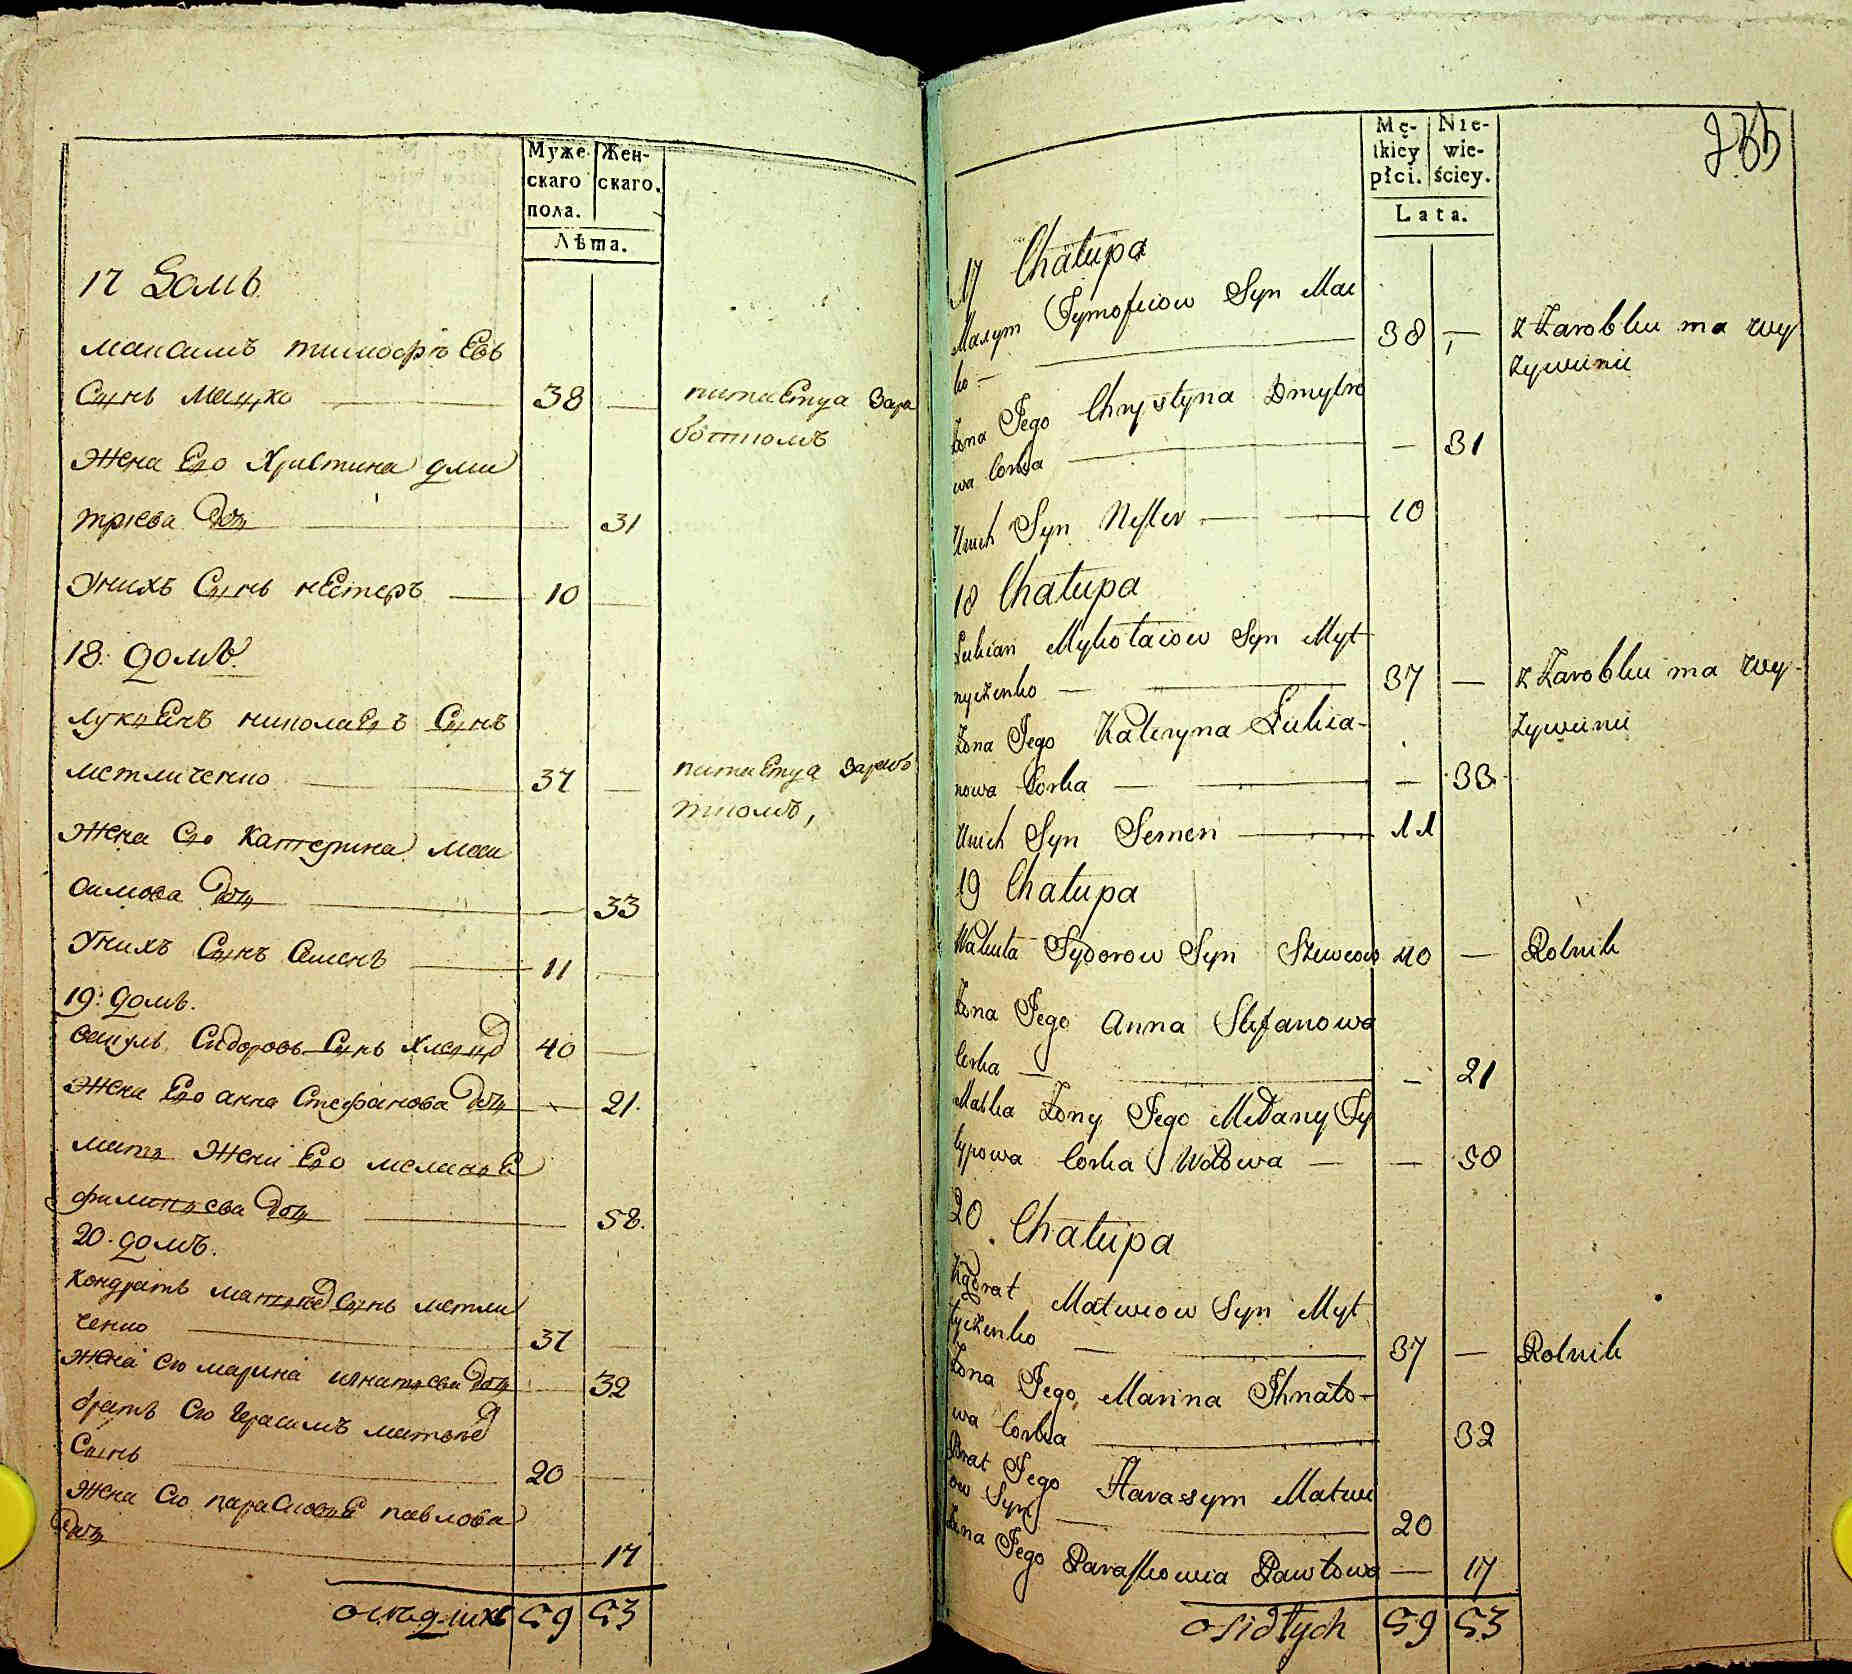 Муже
скаго
пола.
Жен-
скаго.
Лѣта.
17 Домъ
Максимъ тимофѣевъ
Сынъ Мацко 38 —
питается зара
боткомъ
Жена Его Христина дми
трıева доч 31
Унихъ Сынъ нестеръ 10 —
18. домъ.
Лукıянъ николаевъ Сынъ
метличенко 37 —
питается зараб
ткомъ,
Жена Его Катерина
симова доч — 33
Унихъ Сынъ Семенъ 11 —
19: домъ.
Сидоровъ Сынъ 40 —
Жена Его анна Стефанова доч — 21.
мать Жени Его меланıя
филипıева доч 58.
20. домъ.
Кондратъ Сынъ метли
ченко 37 —
Жена Его марина игнатıева доч — 32
братъ Его Герасимъ
Сынъ 20 —
Жена Его парасковıя павлова
доч 17
оседлихъ 59 53
Mę-
skiey
płci.
Nie-
wie-
ściey.
Lata.
17 Chałupa
Maxym Tymofiiow Syn Mac
ko — 38 —
z Zarobku ma wy
żywinie
Żona Jego Chrystyna Dmytro
wa Corka — 31
Unich Syn Nester 10
18 Chałupa
Lukian Mykołaiow Syn Myt
nyczenko — 37 —
z Zarobku ma wy-
żywinie
Żona Jego Kateryna Lukia-
nowa Corka — 33
Unich Syn Semen 11
19 Chałupa
Wakuła Sydorow Syn Szewcow 40 — Rolnik
Żona Jego Anna Stefanowa
Corka — 21
Matka Żony Jego
Corka Wdowa — 58
20. Chałupa
Matwiow Syn Myt
tyczenko — 37 — Rolnik
Żona Jego Marina Ihnato-
wa Corka 32
Brat Jego Harasym Matwi
ow Syn — 20
Żona Jego Paraskowia Pawłowa — 17
osidłych 59 53